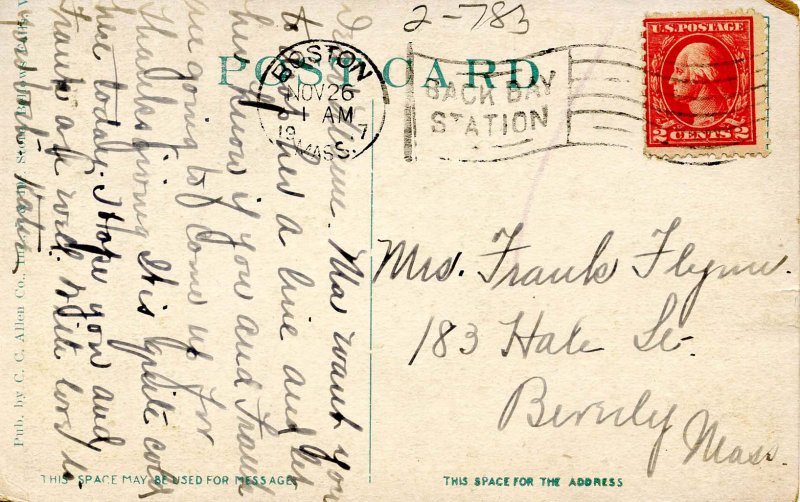 2-783
POST CARD
BOSTON
NOV 26
1 AM
19 7
MASS.
BACK BAY
STATION
U.S. POSTAGE
2 CENTS 2
Dear Ma want you
to drop her a line and let
her know if you and Frank
are going to come up for
Thanksgiving. It is quite cold
here today. Hope you and
Frank are well. With love to
Katie
Mrs. Frank Flynn.
183 Hale St.
Beverly
Mass.
Pub. by C. C. Allen Co., Bellows Falls, V
THIS SPACE MAY BE USED FOR MESSAGE
THIS SPACE FOR THE ADDRESS